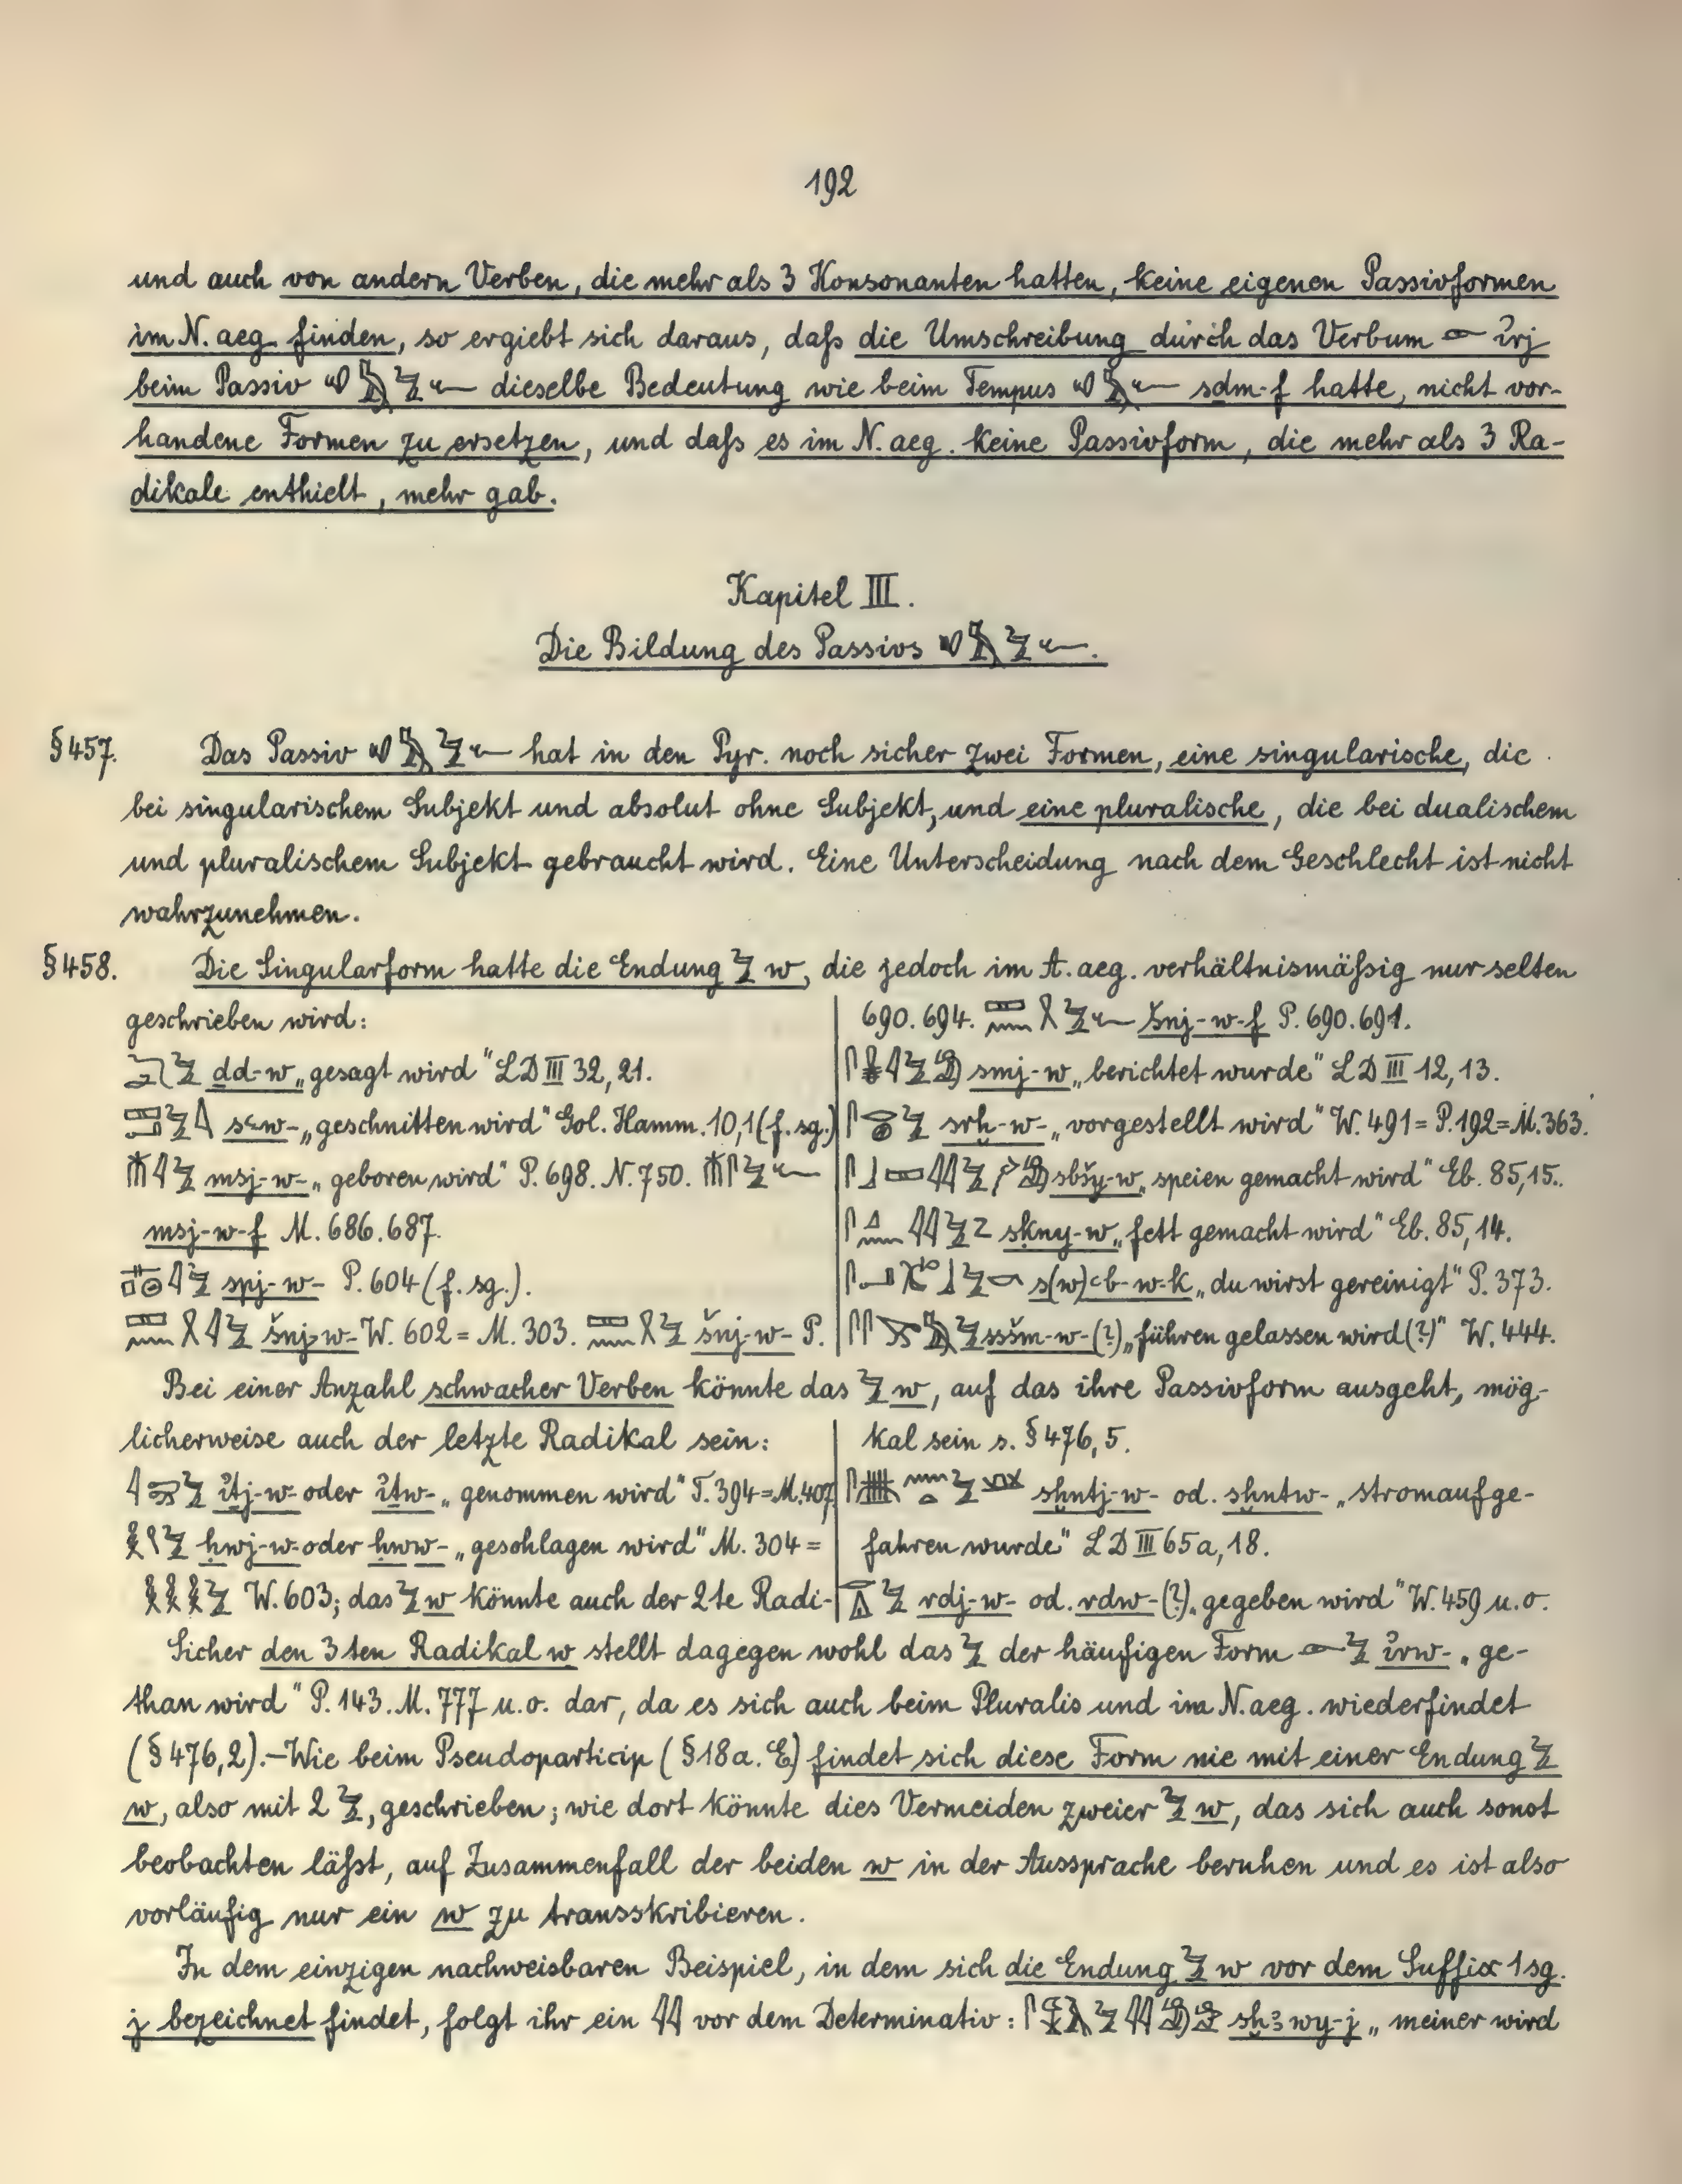 192
und auch von andern Verben, die mehr als 3 Konsonanten hatten, keine eigenen Passivformen
im N. aeg. finden, so ergiebt sich daraus, daſs die Umschreibung durch das Verbum ı͗rj
beim Passiv dieselbe Bedeutung wie beim Tempus sdm-f hatte, nicht vor-
handene Formen zu ersetzen, und daſs es im N. aeg. keine Passivform, die mehr als 3 Ra-
dikale enthielt, mehr gab.
Kapitel III.
Die Bildung des Passivs
§457. Das Passiv hat in den Pyr. noch sicher zwei Formen, eine singularische, die
bei singularischem Subjekt und absolut ohne Subjekt, und eine pluralische, die bei dualischem
und pluralischem Subjekt gebraucht wird. Eine Unterscheidung nach dem Geschlecht ist nicht
wahrzunehmen.
§458. Die Singularform hatte die Endung w, die jedoch im A. aeg. verhältnismäſsig nur selten
geschrieben wird:
dd-w „gesagt wird" LD III 32, 21.
sꜥ-w- „geschnitten wird" Gol. Hamm. 10,1 (f. sg.)
msj-w- „geboren wird" P. 698. N. 750.
msj-w-f M. 686. 687.
spj-w- P. 604 (f. sg.).
šnj-w- W. 602 = M. 303. šnj-w- P.
690. 694. šnj-w-f P. 690. 691.
smj-w „berichtet wurde" LD III 12, 13.
srḫ-w- „vorgestellt wird" W. 491 = P. 192 = M. 363.
sbšy-w „speien gemacht wird" Eb. 85, 15.
skny-w „fett gemacht wird" Eb. 85, 14.
s(w)ꜥb-w-k „du wirst gereinigt" P. 373.
sšm-w-(?) „führen gelassen wird(?)" W. 444.
Bei einer Anzahl schwacher Verben könnte das w, auf das ihre Passivform ausgeht, mög-
licherweise auch der letzte Radikal sein:
ı͗ṯj-w- oder ı͗ṯw- „genommen wird" T. 394 = M. 407
ḥwj-w- oder ḥww- „geschlagen wird" M. 304 =
W. 603; das w könnte auch der 2te Radi-
kal sein s. §476, 5.
sḫntj-w- od. sḫntw- „stromaufge-
fahren wurde" LD III 65a, 18.
rdj-w- od. rdw-(?) „gegeben wird" W. 459 u. o.
Sicher den 3ten Radikal w stellt dagegen wohl das der häufigen Form ı͗rw- „ge-
than wird" P. 143. M. 777 u. o. dar, da es sich auch beim Pluralis und im N. aeg. wiederfindet
(§476, 2).–Wie beim Pseudoparticip (§18a. E) findet sich diese Form nie mit einer Endung
w, also mit 2, geschrieben; wie dort könnte dies Vermeiden zweier w, das sich auch sonst
beobachten läſst, auf Zusammenfall der beiden w in der Aussprache beruhen und es ist also
vorläufig nur ein w zu transskribieren.
In dem einzigen nachweisbaren Beispiel, in dem sich die Endung w vor dem Suffix 1 sg.
j bezeichnet findet, folgt ihr ein vor dem Determinativ: sḫꜣwy-j „meiner wird